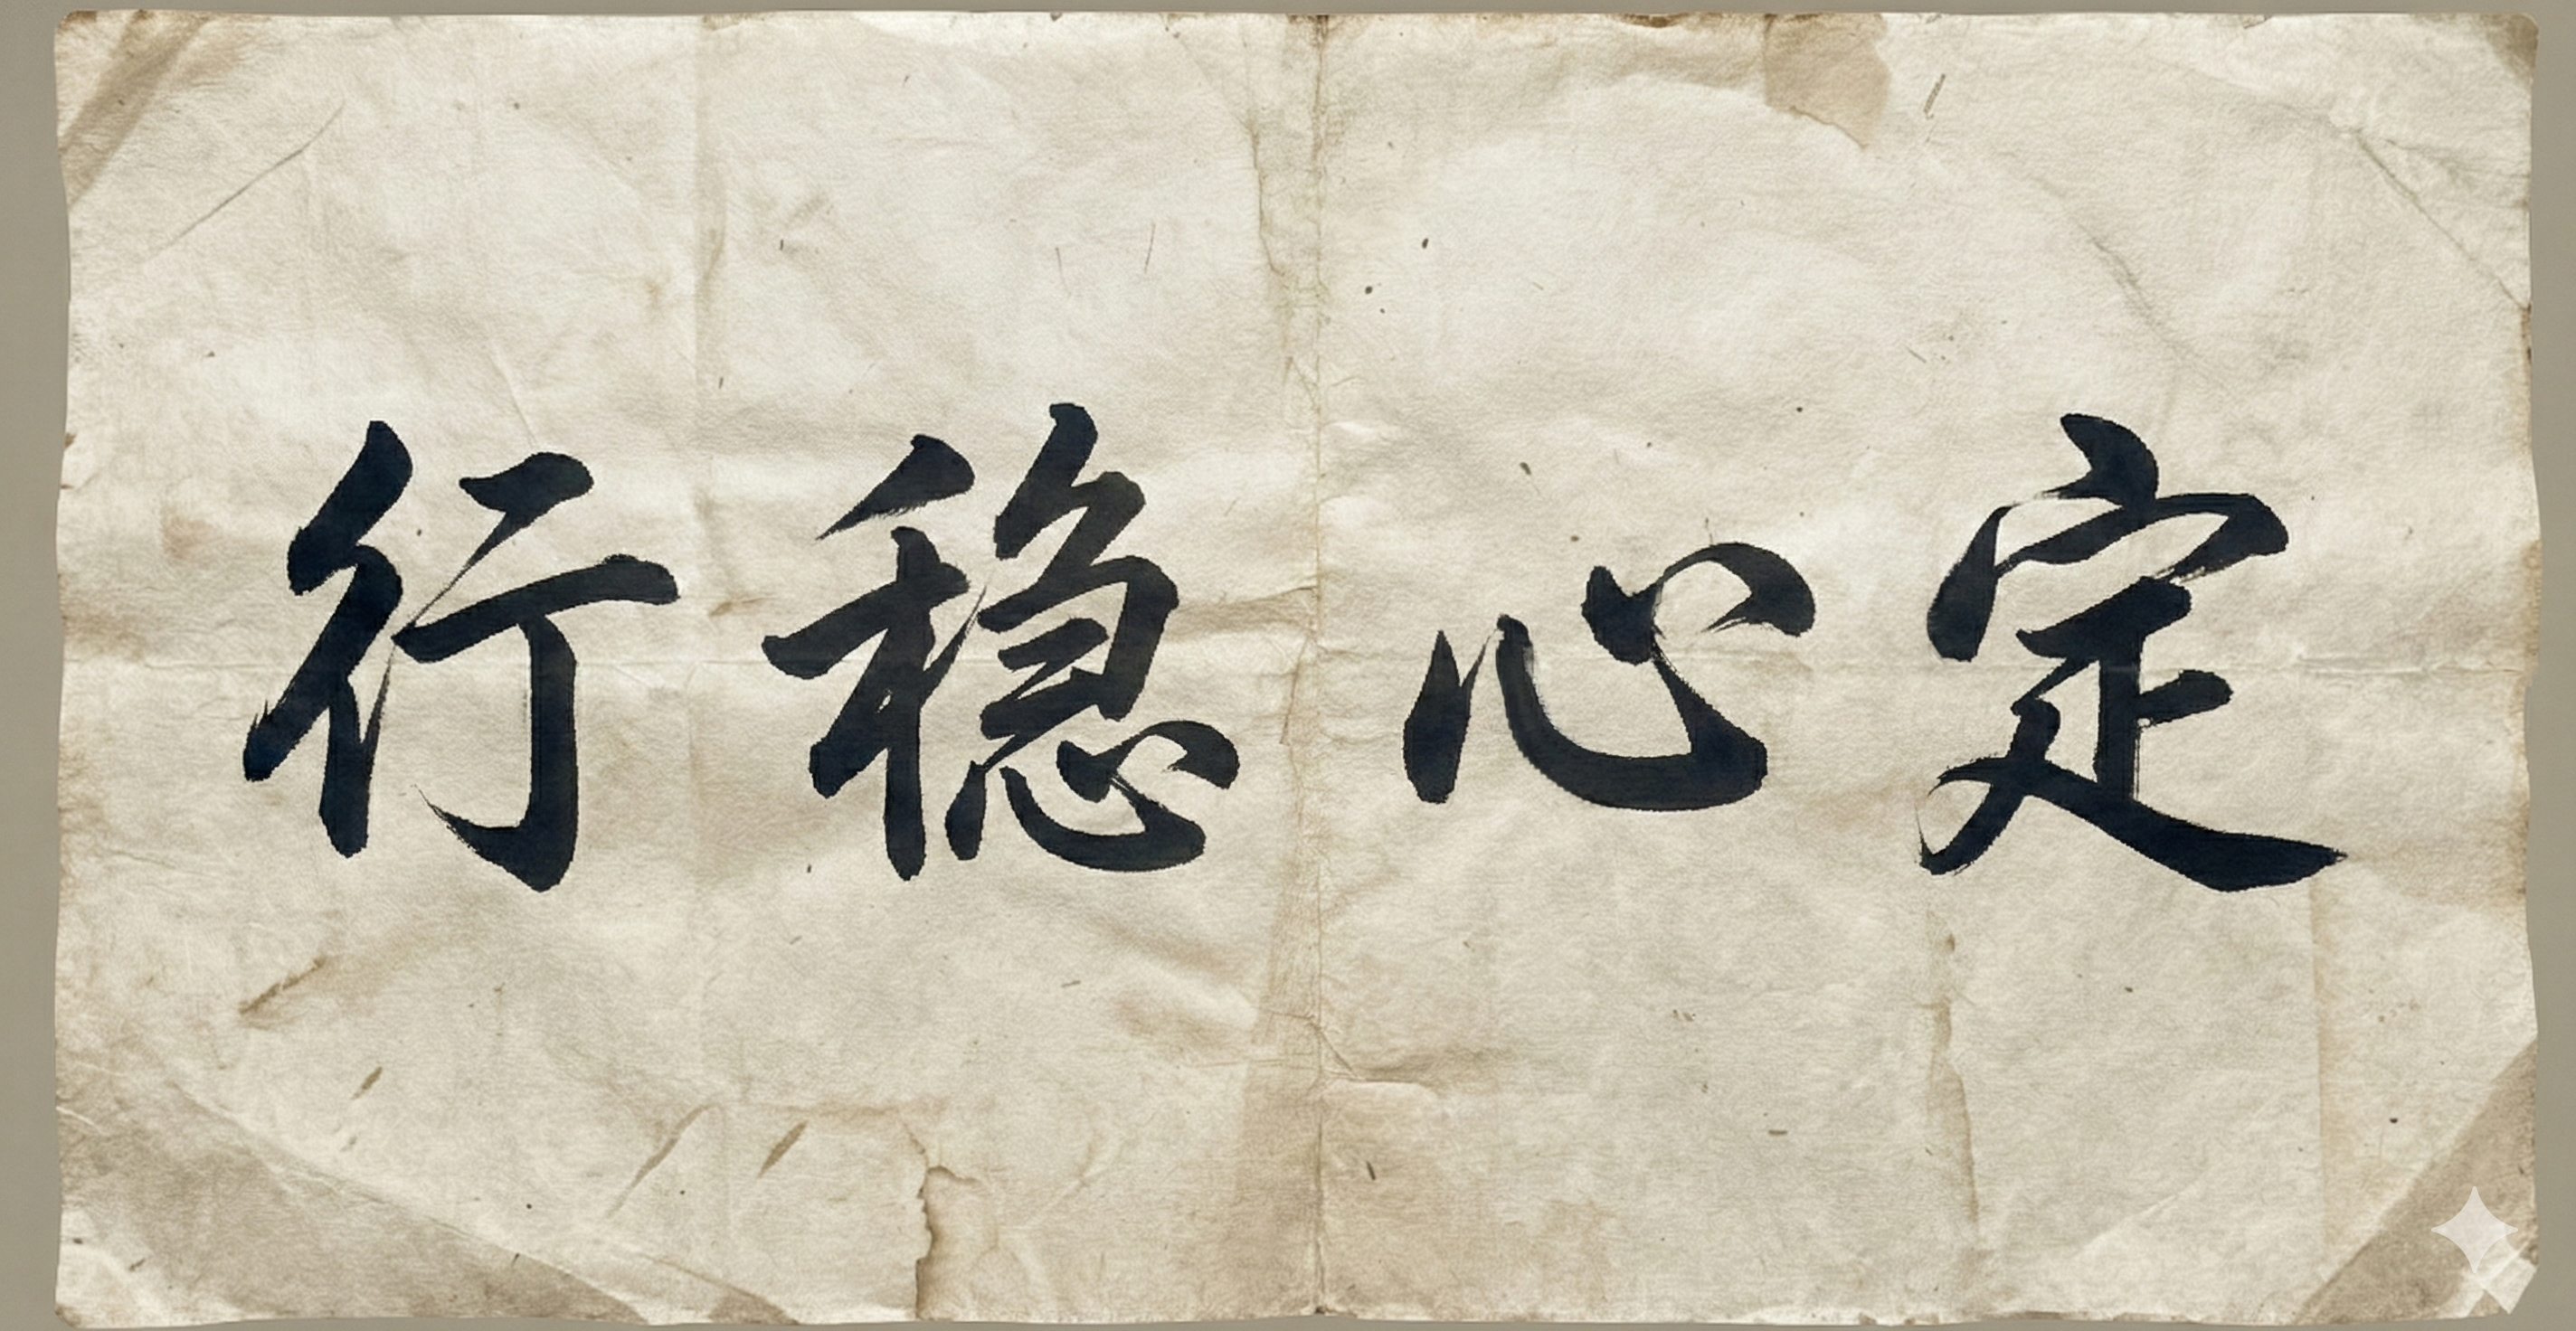 行稳心定